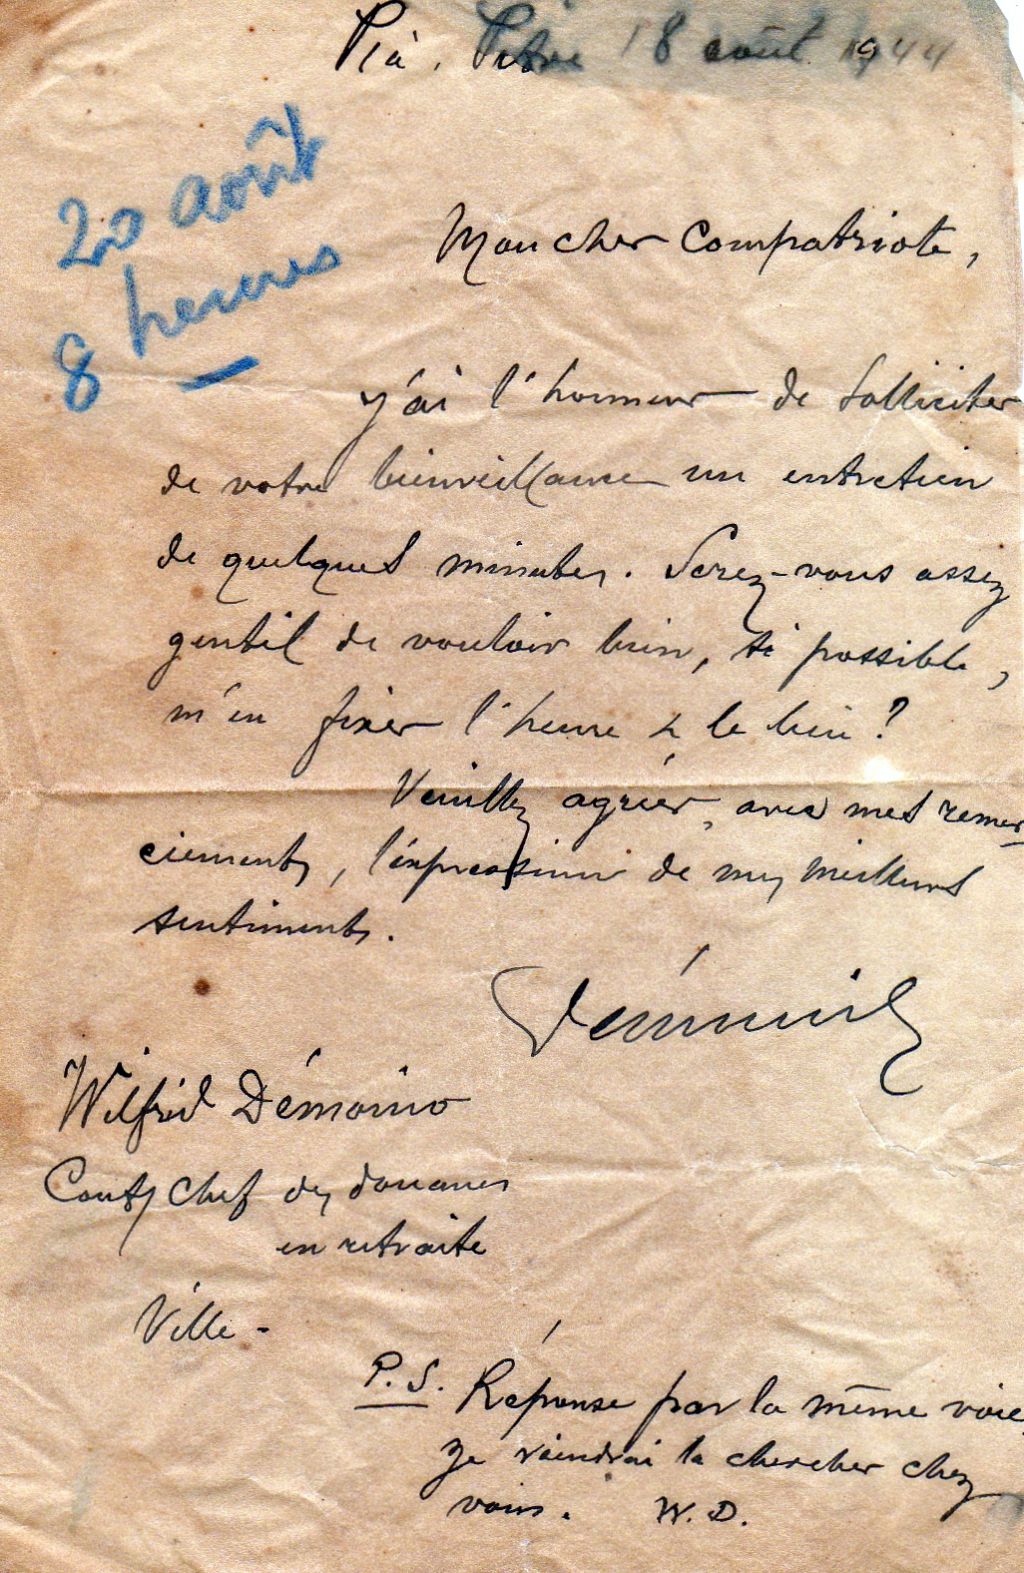 P. à. Pitre 18 août 1944
20 août
8 heures
Mon cher Compatriote,
J'ai l'honneur de solliciter
de votre bienveillance un entretien
de quelques minutes. Serez-vous assez
gentil de vouloir bien, si possible,
m'en fixer l'heure & le lieu ?
Veuillez agréer, avec mes remer-
ciements, l'expression de mes meilleurs
sentiments.
Wilfrid Démonio
Chef des douanes
en retraite
Ville -
P.S. Réponse par la même voie,
Je viendrai la chercher chez
vous. W.D.